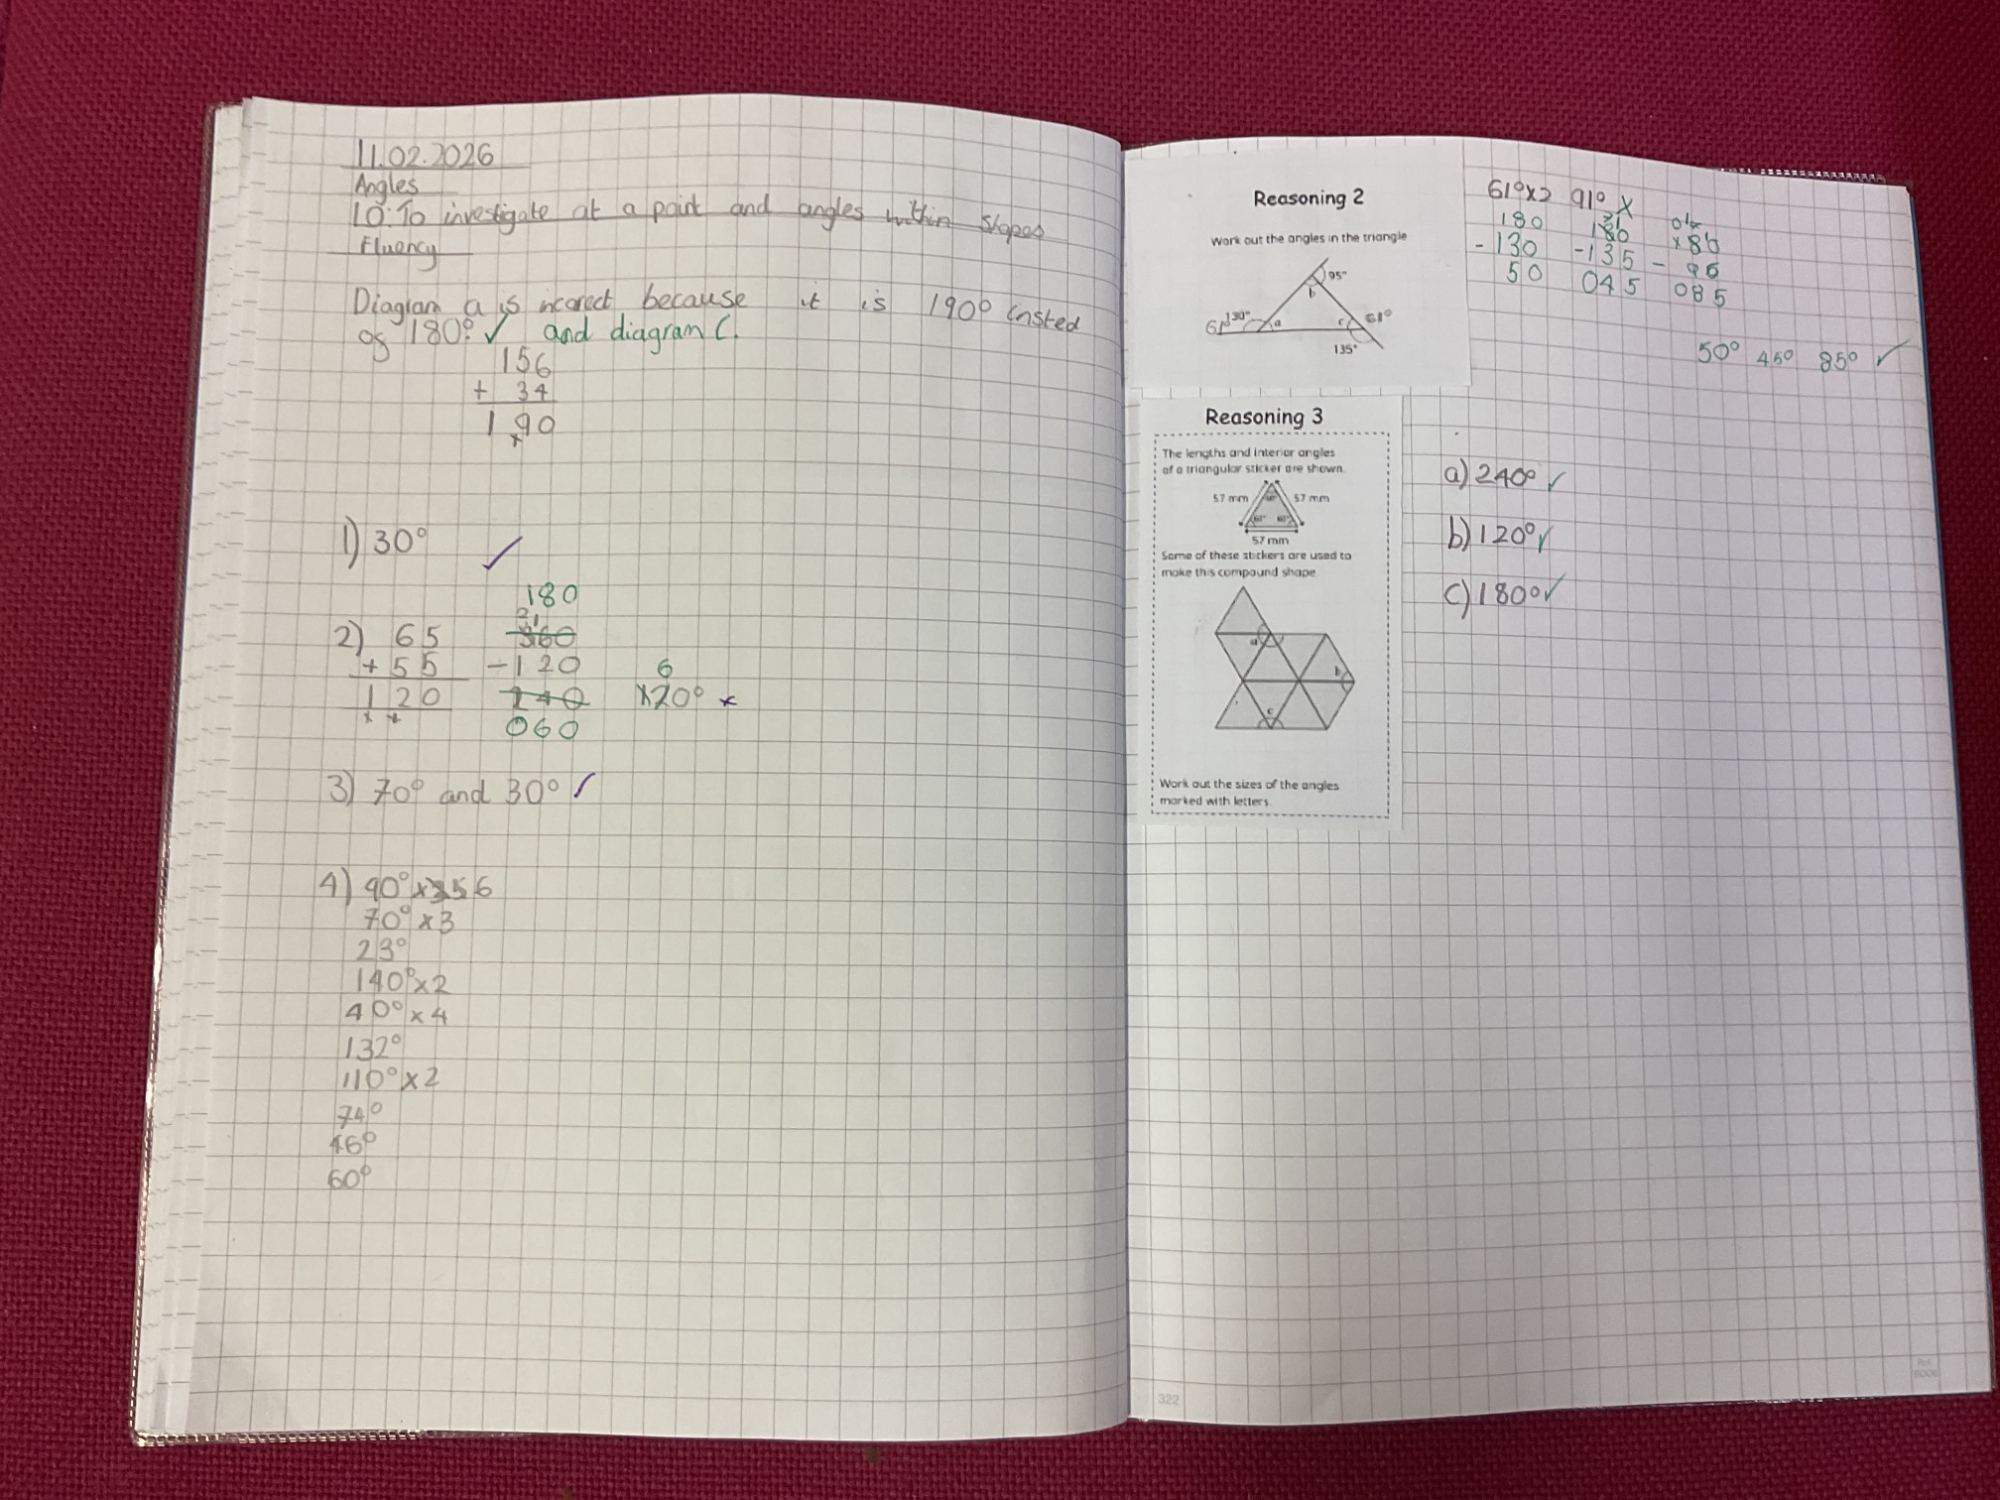 11.02.2026
Angles
LO: To investigate at a point and angles within shapes
Fluency
Diagram a is incorect because it is 190° insted
og 180°. ✓ and diagram C.
156
+ 34
190
1) 30° ✓
180
2) 65 360
+ 55 - 120 6
120 240 120° x
060
3) 70° and 30° ✓
4) 90° x 6
70° x 3
23°
140° x 2
40° x 4
132°
110° x 2
74°
46°
60°
Reasoning 2
Work out the angles in the triangle
95°
b
61° 130° a c 61°
135°
61° x2 91° x
180 180 180
- 130 - 135 - 95
50 045 085
50° 45° 85° ✓
Reasoning 3
The lengths and interior angles
of a triangular sticker are shown.
57 mm 57 mm
60° 60°
57 mm
Some of these stickers are used to
make this compound shape.
a
b
c
Work out the sizes of the angles
marked with letters.
a) 240° ✓
b) 120° ✓
c) 180° ✓
322